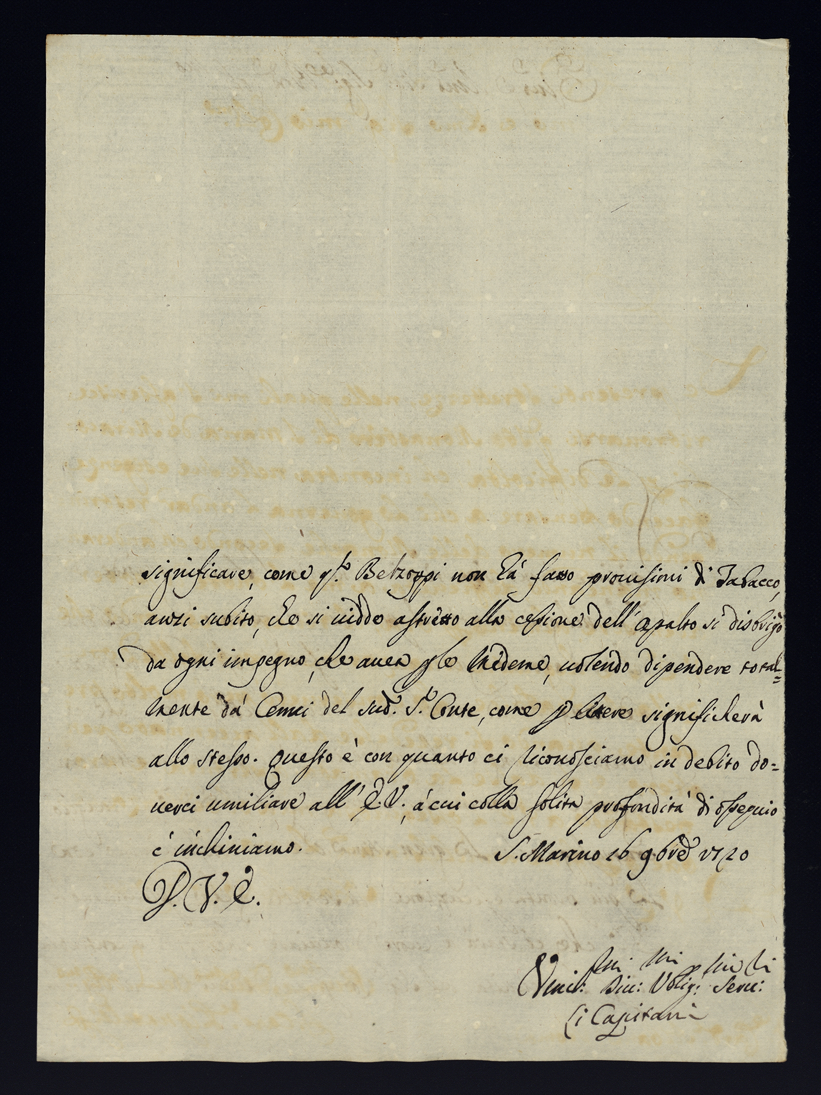 significare, come il S.r Belzoppi non hà fatto provisioni di Tabacco,
anzi subito, che si vidde astretto alla cessione dell'Apalto si disobrigò
da ogni impegno, che avea p le medeme, volendo dipendere total=
mente dà Cenni del sud.o S.r Conte, come p lettere significherà
allo stesso. Questo è con quanto ci riconosciamo in debito do=
verci umiliare all'E V., à cui colla solita profondità di ossequio
c'inchiniamo.
S. Marino 16 9bre 1720
D. V. E.
Umil:mi Div:mi Oblig:mi Serv:ri
Li Capitani